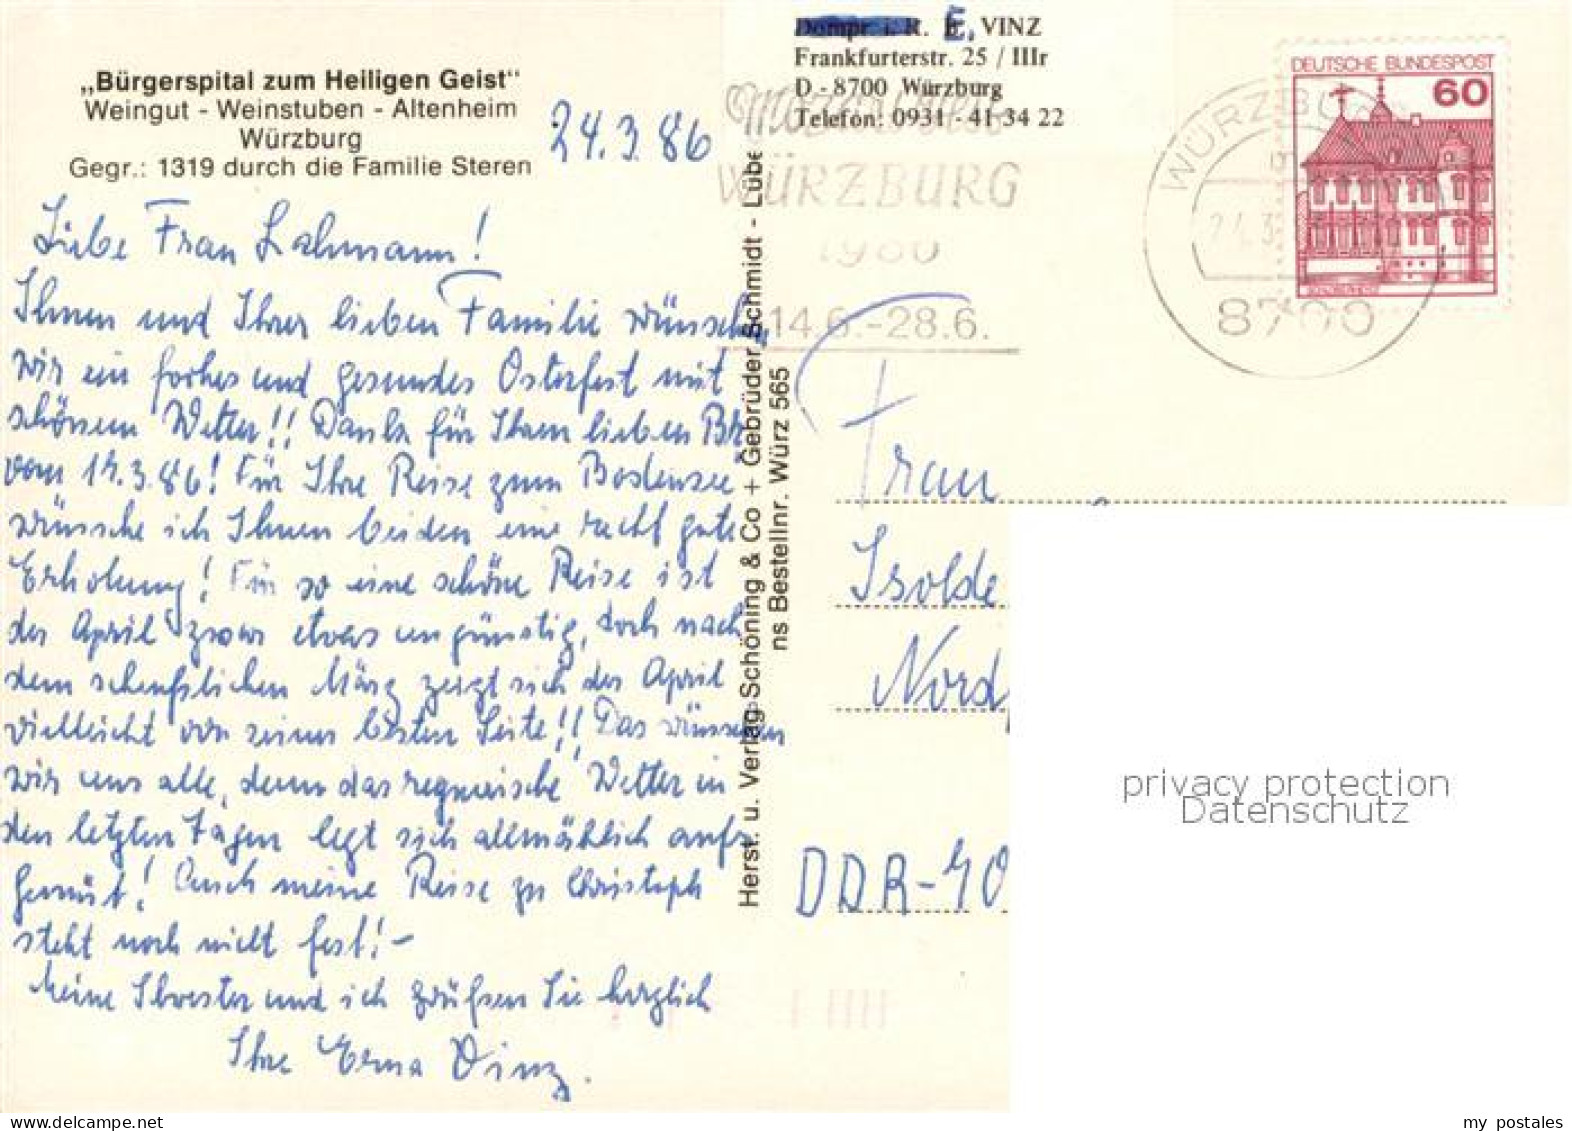 „Bürgerspital zum Heiligen Geist"
Weingut - Weinstuben - Altenheim
Würzburg
Gegr.: 1319 durch die Familie Steren
24.3.86
Liebe Frau Lahmann!
Ihnen und Ihrer lieben Familie wünschen
wir ein frohes und gesundes Osterfest mit
schönem Wetter!! Dank für Ihren lieben Br.
vom 17.3.86! Für Ihre Reise zum Bodensee
wünsche ich Ihnen beiden eine recht gute
Erholung! Für so eine schöne Reise ist
der April zwar etwas ungünstig, doch nach
dem scheußlichen März zeigt sich der April
vielleicht von seiner besten Seite!! Das wünschen
wir uns alle, denn das regnerische Wetter in
den letzten Tagen legt sich allmählich aufs
Gemüt! Auch meine Reise zu Christoph
steht noch nicht fest! -
Meine Schwester und ich grüßen Sie herzlich
Ihre Erna Vinz.
Herst. u. Verlag Schöning & Co + Gebrüder Schmidt - Lübe
ns Bestellnr. Würz 565
Dompr. i. R. E. VINZ
Frankfurterstr. 25 / IIIr
D - 8700 Würzburg
Telefon: 0931 - 41 34 22
Mozartfest
WÜRZBURG
1986
14.6.-28.6.
WÜRZBURG
8700
DEUTSCHE BUNDESPOST
60
Frau
Isolde
Nord
DDR-70
privacy protection
Datenschutz
my postales